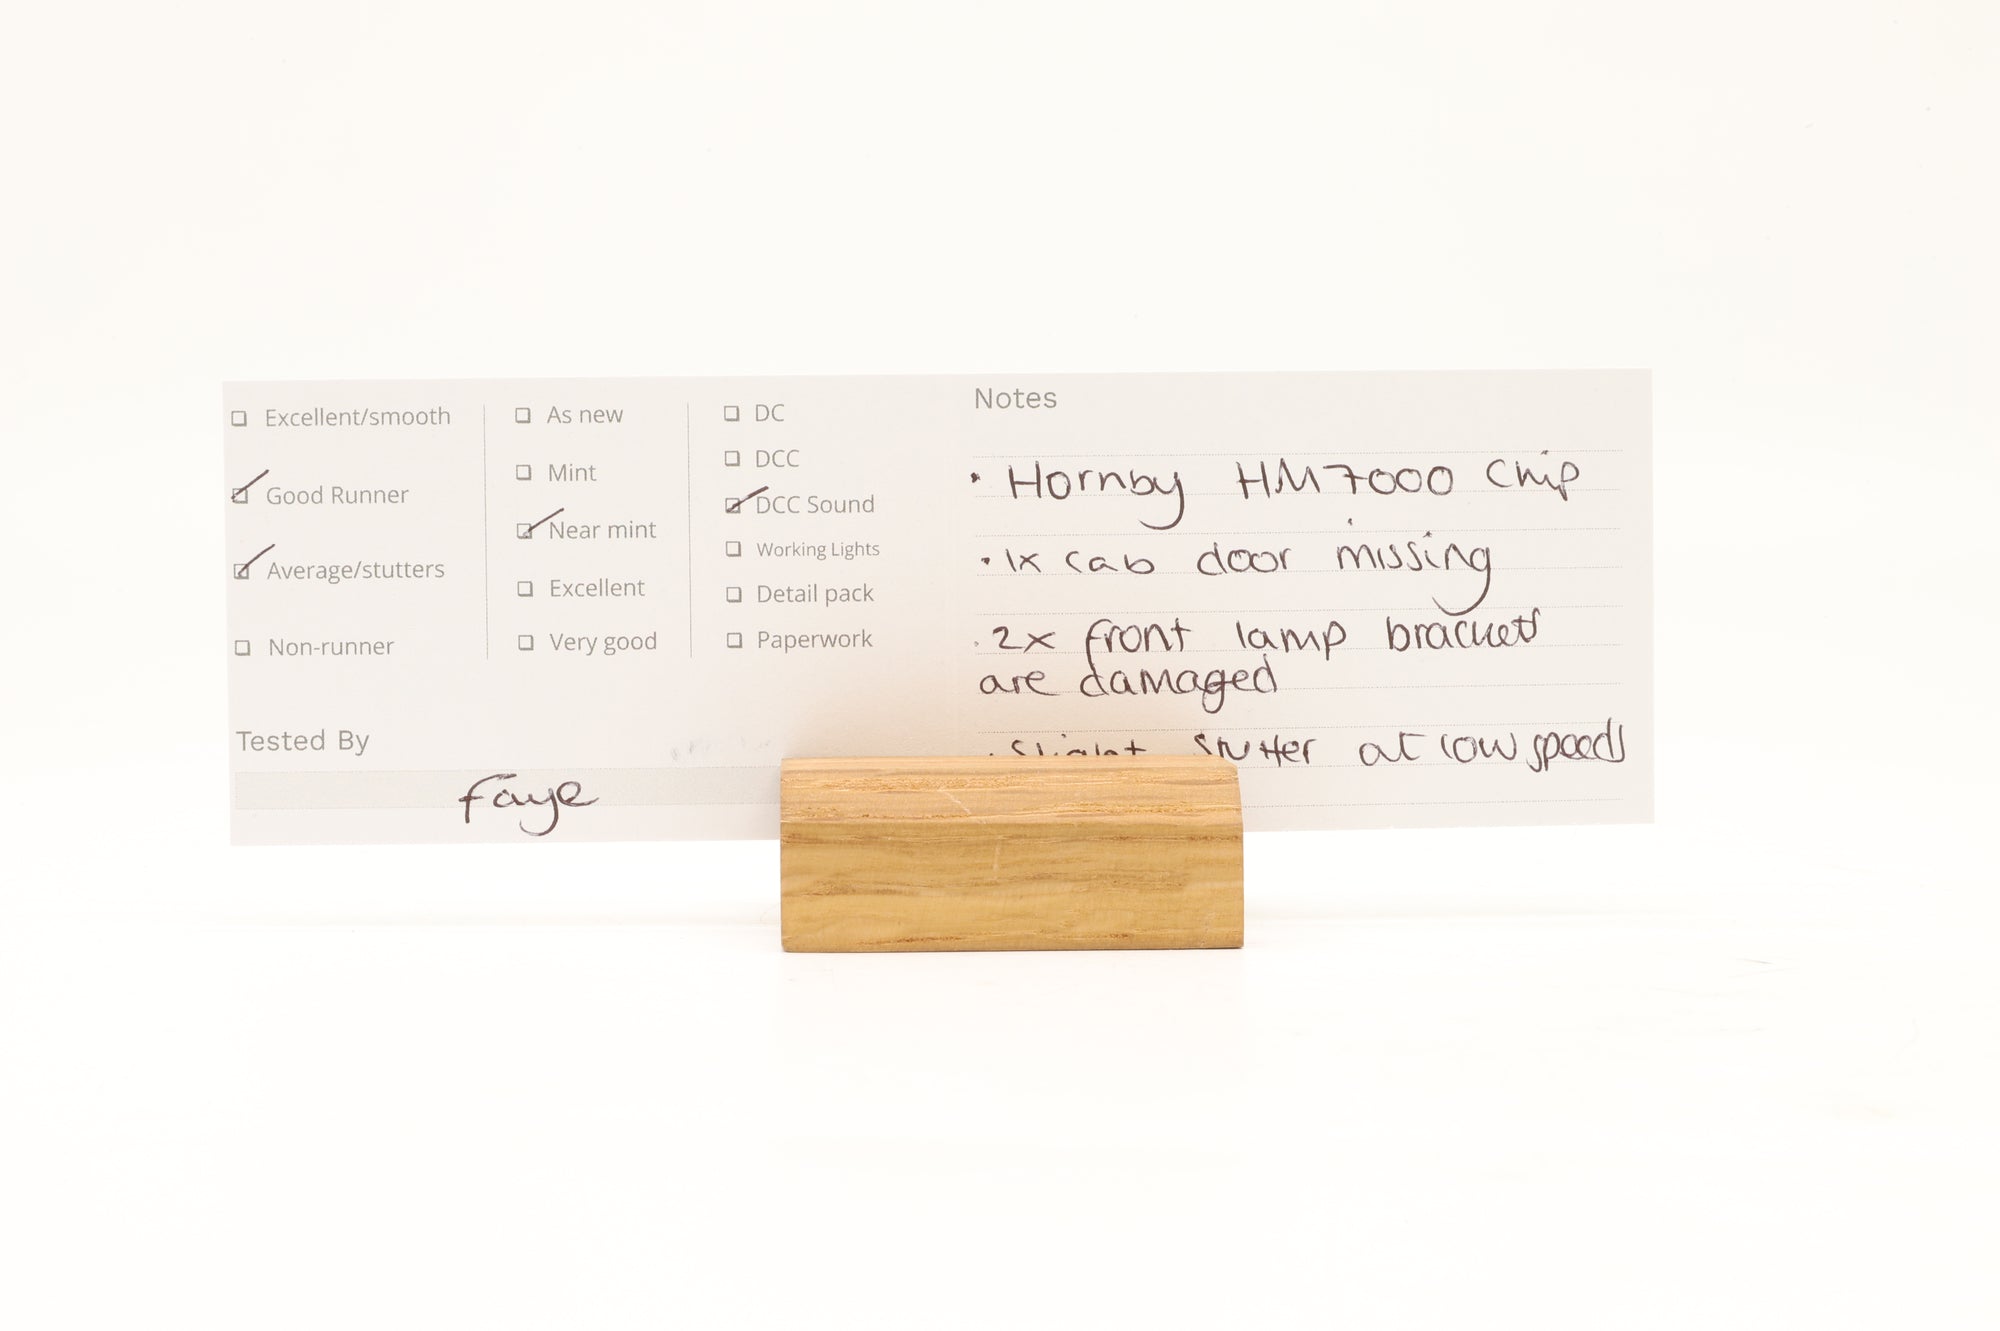 Excellent/smooth
Good Runner
Average/stutters
Non-runner
As new
Mint
Near mint
Excellent
Very good
DC
DCC
DCC Sound
Working Lights
Detail pack
Paperwork
Tested By
faye
Notes
· Hornby HM7000 Chip
· 1x cab door missing
· 2x front lamp brackets
are damaged
· Slight stutter at low speeds